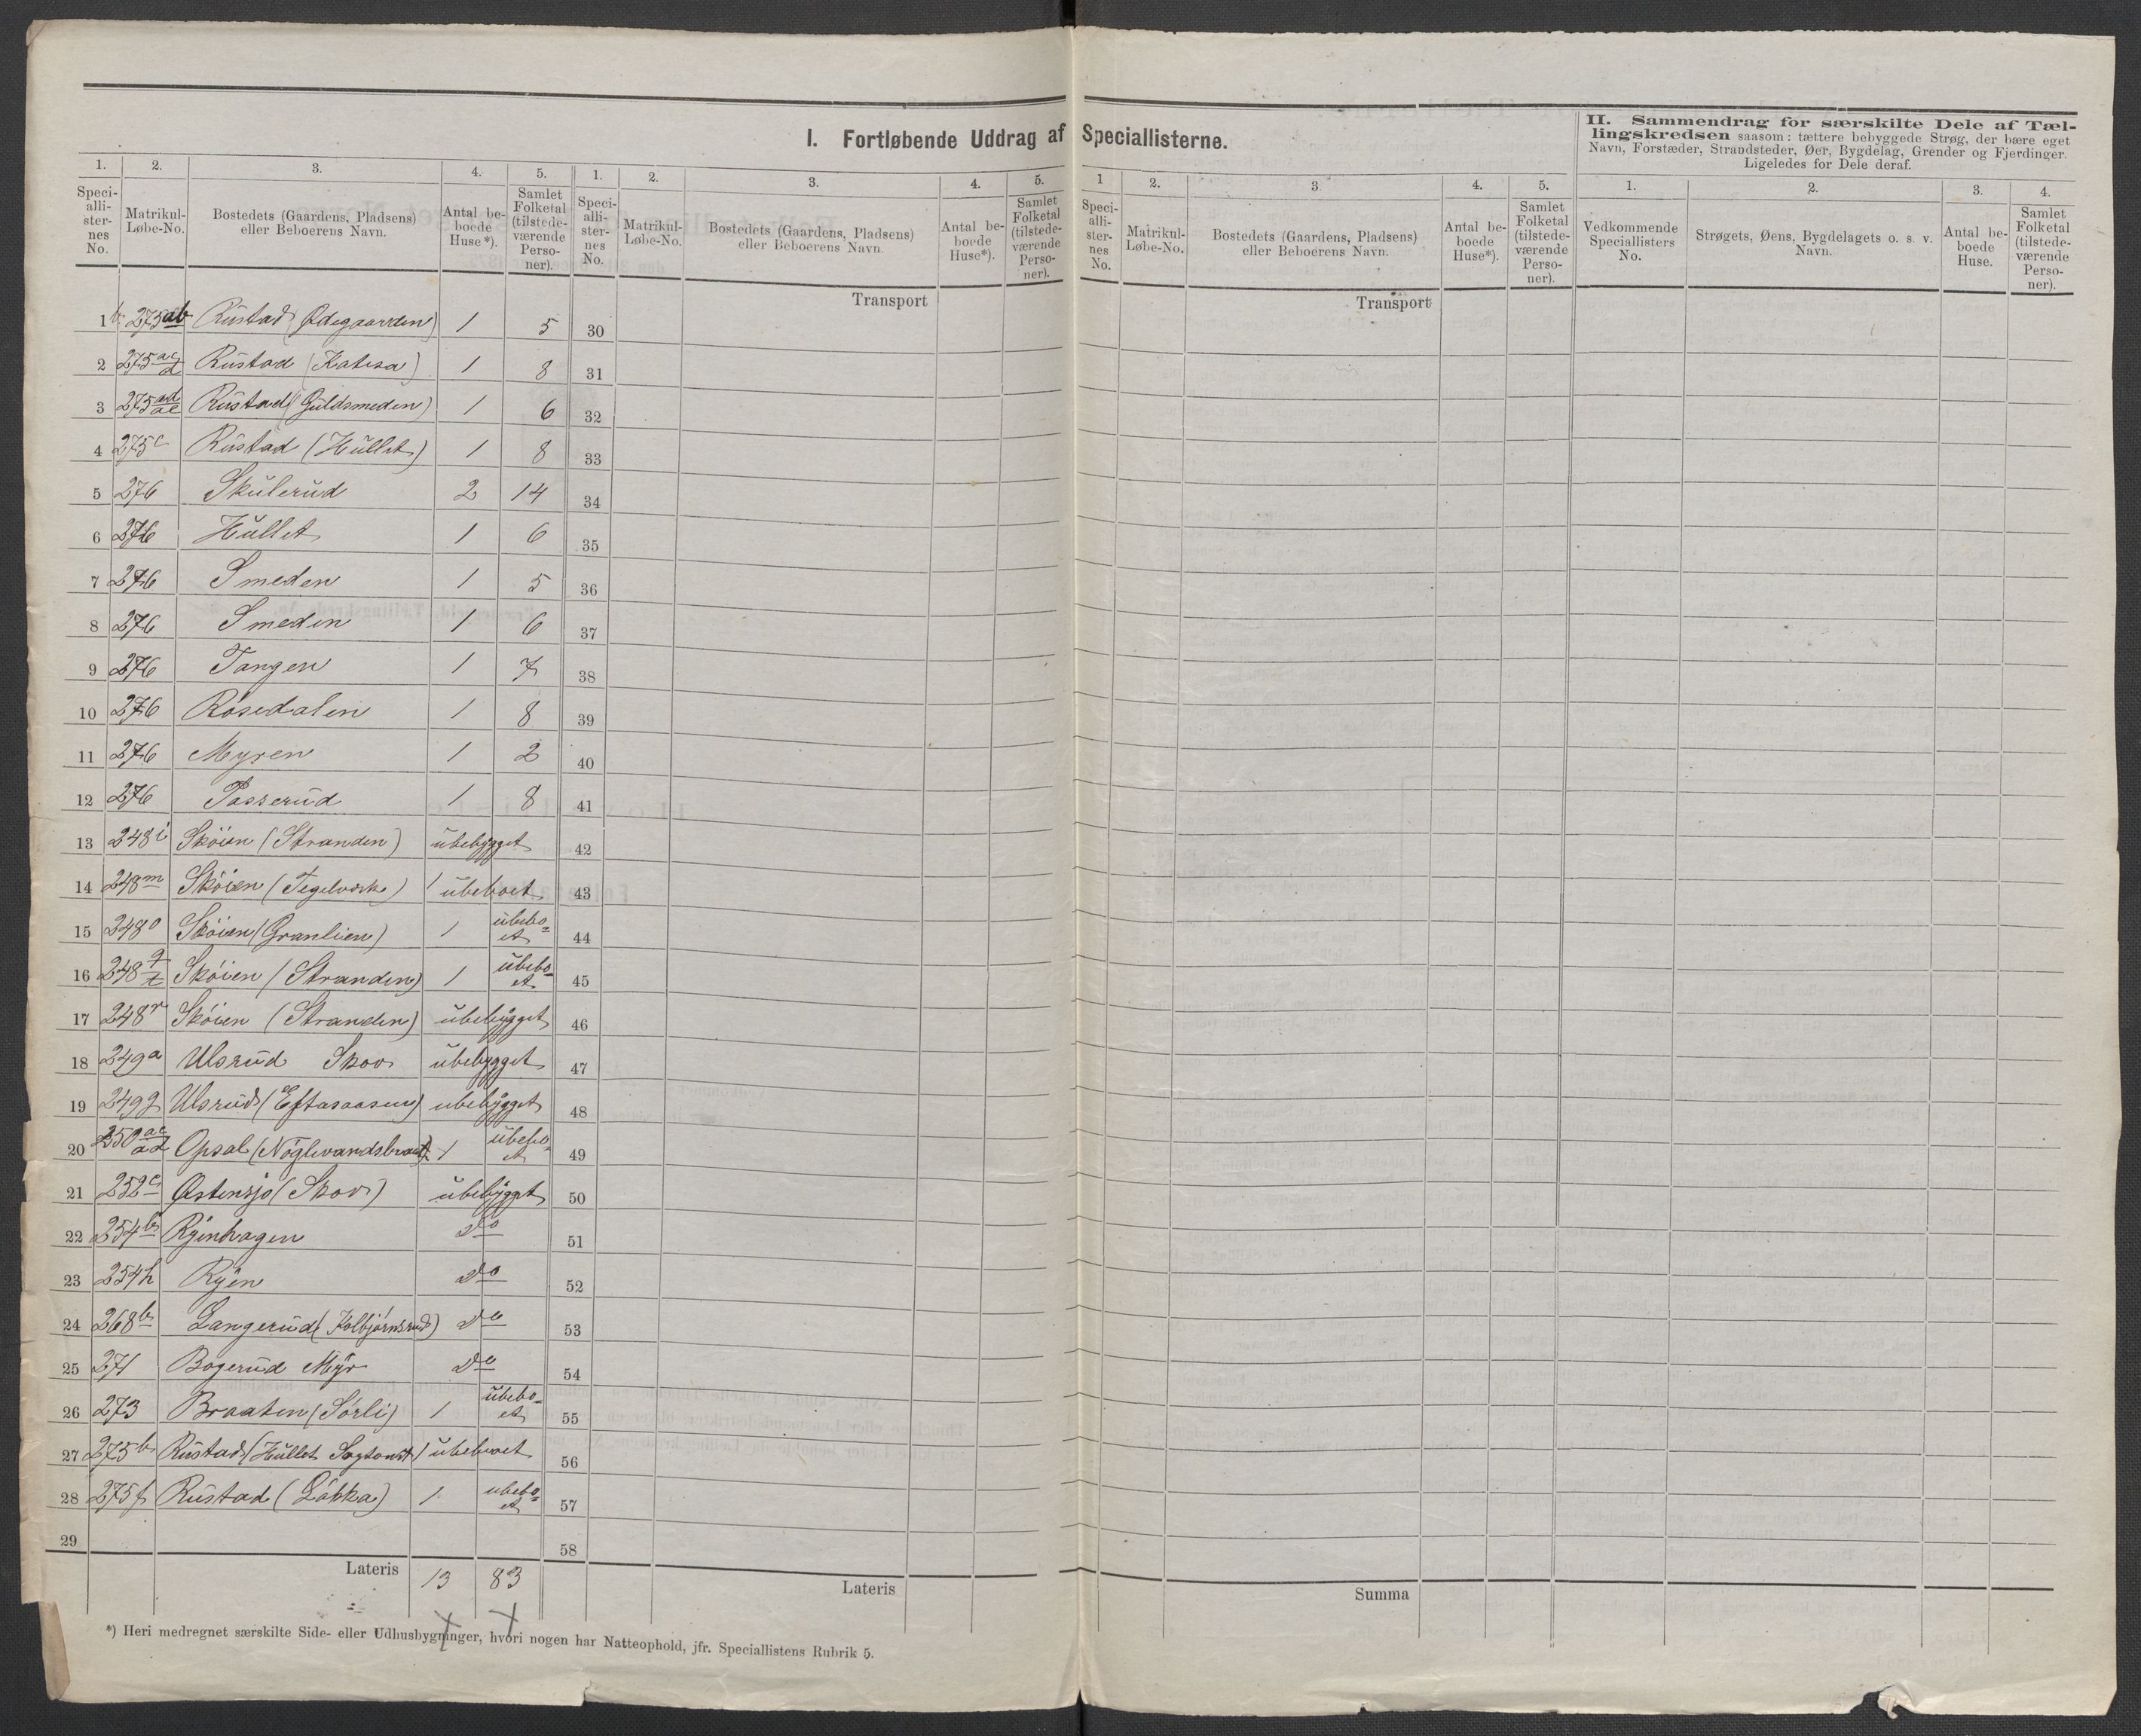 I. Fortløbende Uddrag af Speciallisterne.
II. Sammendrag for særskilte Dele af Tæl-
lingskredsen saasom: tættere bebyggede Strøg, der bære eget
Navn, Forstæder, Strandsteder, Øer, Bygdelag, Grender og Fjerdinger.
Ligeledes for Dele deraf.
1. 2. 3. 4. 5. 1. 2. 3. 4. 5. 1 2. 3. 4. 5. 1. 2. 3. 4.
Speci-
alli-
ster-
nes
No.
Matrikul-
Løbe-No.
Bostedets (Gaardens, Pladsens)
eller Beboerens Navn.
Antal be-
boede
Huse*).
Samlet
Folketal
(tilstede-
værende
Perso-
ner).
Speci-
alli-
ster-
nes
No.
Matrikul-
Løbe-No.
Bostedets (Gaardens, Pladsens)
eller Beboerens Navn.
Antal be-
boede
Huse*).
Samlet
Folketal
(tilstede-
værende
Perso-
ner).
Speci-
alli-
ster-
nes
No.
Matrikul-
Løbe-No.
Bostedets (Gaardens, Pladsens)
eller Beboerens Navn.
Antal be-
boede
Huse*).
Samlet
Folketal
(tilstede-
værende
Perso-
ner).
Vedkommende
Speciallisters
No.
Strøgets, Øens, Bygdelagets o. s. v.
Navn.
Antal be-
boede
Huse.
Samlet
Folketal
(tilstede-
værende
Perso-
ner).
Transport Transport
1 275ab Rustad (Ødegaarden) 1 5 30
2 275ac Rustad (Katisa) 1 8 31
3 275ad ae Rustad (Guldsmeden) 1 6 32
4 275c Rustad (Hullet) 1 8 33
5 276 Skulerud 2 14 34
6 276 Hullet 1 6 35
7 276 Smeden 1 5 36
8 276 Smeden 1 6 37
9 276 Tangen 1 7 38
10 276 Rosedalen 1 8 39
11 276 Myren 1 2 40
12 276 Passerud 1 8 41
13 248i Skøien (Stranden) ubebygget 42
14 248m Skøien (Tegelværke) 1 ubeboet 43
15 248o Skøien (Granlien) 1 ubebo=
et 44
16 248q t Skøien (Stranden) 1 ubebo=
et 45
17 248r Skøien (Stranden) ubebygget 46
18 249a Ulsrud Skov ubebygget 47
19 249g Ulsrud (Eftasaasen) ubebygget 48
20 250ac ad Opsal (Nøglevandsbraat) 1 ubebo=
et 49
21 252c Østensjø (Skov) ubebygget 50
22 254b Ryenhagen do 51
23 254h Ryen do 52
24 268b Langerud (Kolbjørnsrud) do 53
25 271 Bogerud Myr do 54
26 273 Braaten (Sørli) 1 ubebo=
et 55
27 275b Rustad (Hullet Sagtomt) 1 ubeboet 56
28 275f Rustad (Løkka) 1 ubebo=
et 57
29 58
Lateris 13 83 Lateris Summa
*) Heri medregnet særskilte Side- eller Udhusbygninger, hvori nogen har Natteophold, jfr. Speciallistens Rubrik 5.